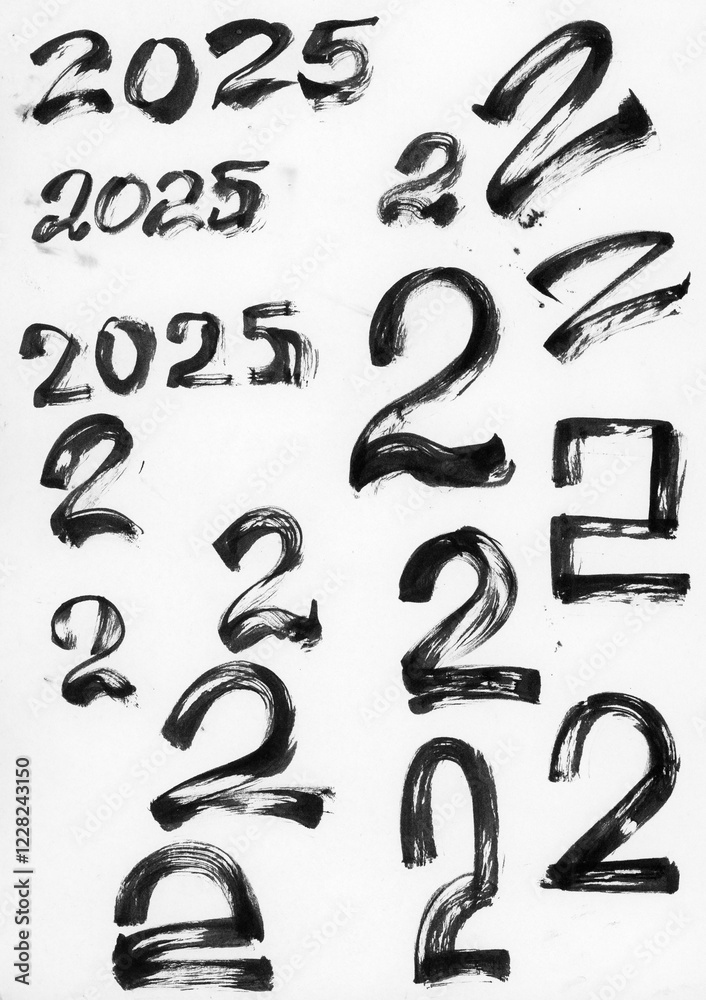 2025
2025
2025
2
2
2
2
2
2
2
2
2
2
2
2
2
Adobe Stock | #1228243150